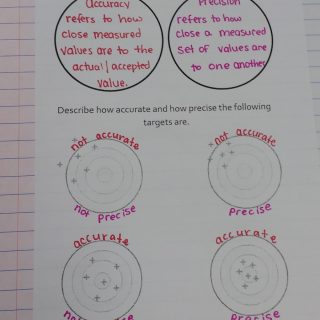 Accuracy
refers to how
close measured
values are to the
actual/accepted
value.
Precision
refers to how
close a measured
set of values are
to one another.
Describe how accurate and how precise the following
targets are.
not accurate
not precise
not accurate
precise
accurate
not precise
accurate
precise